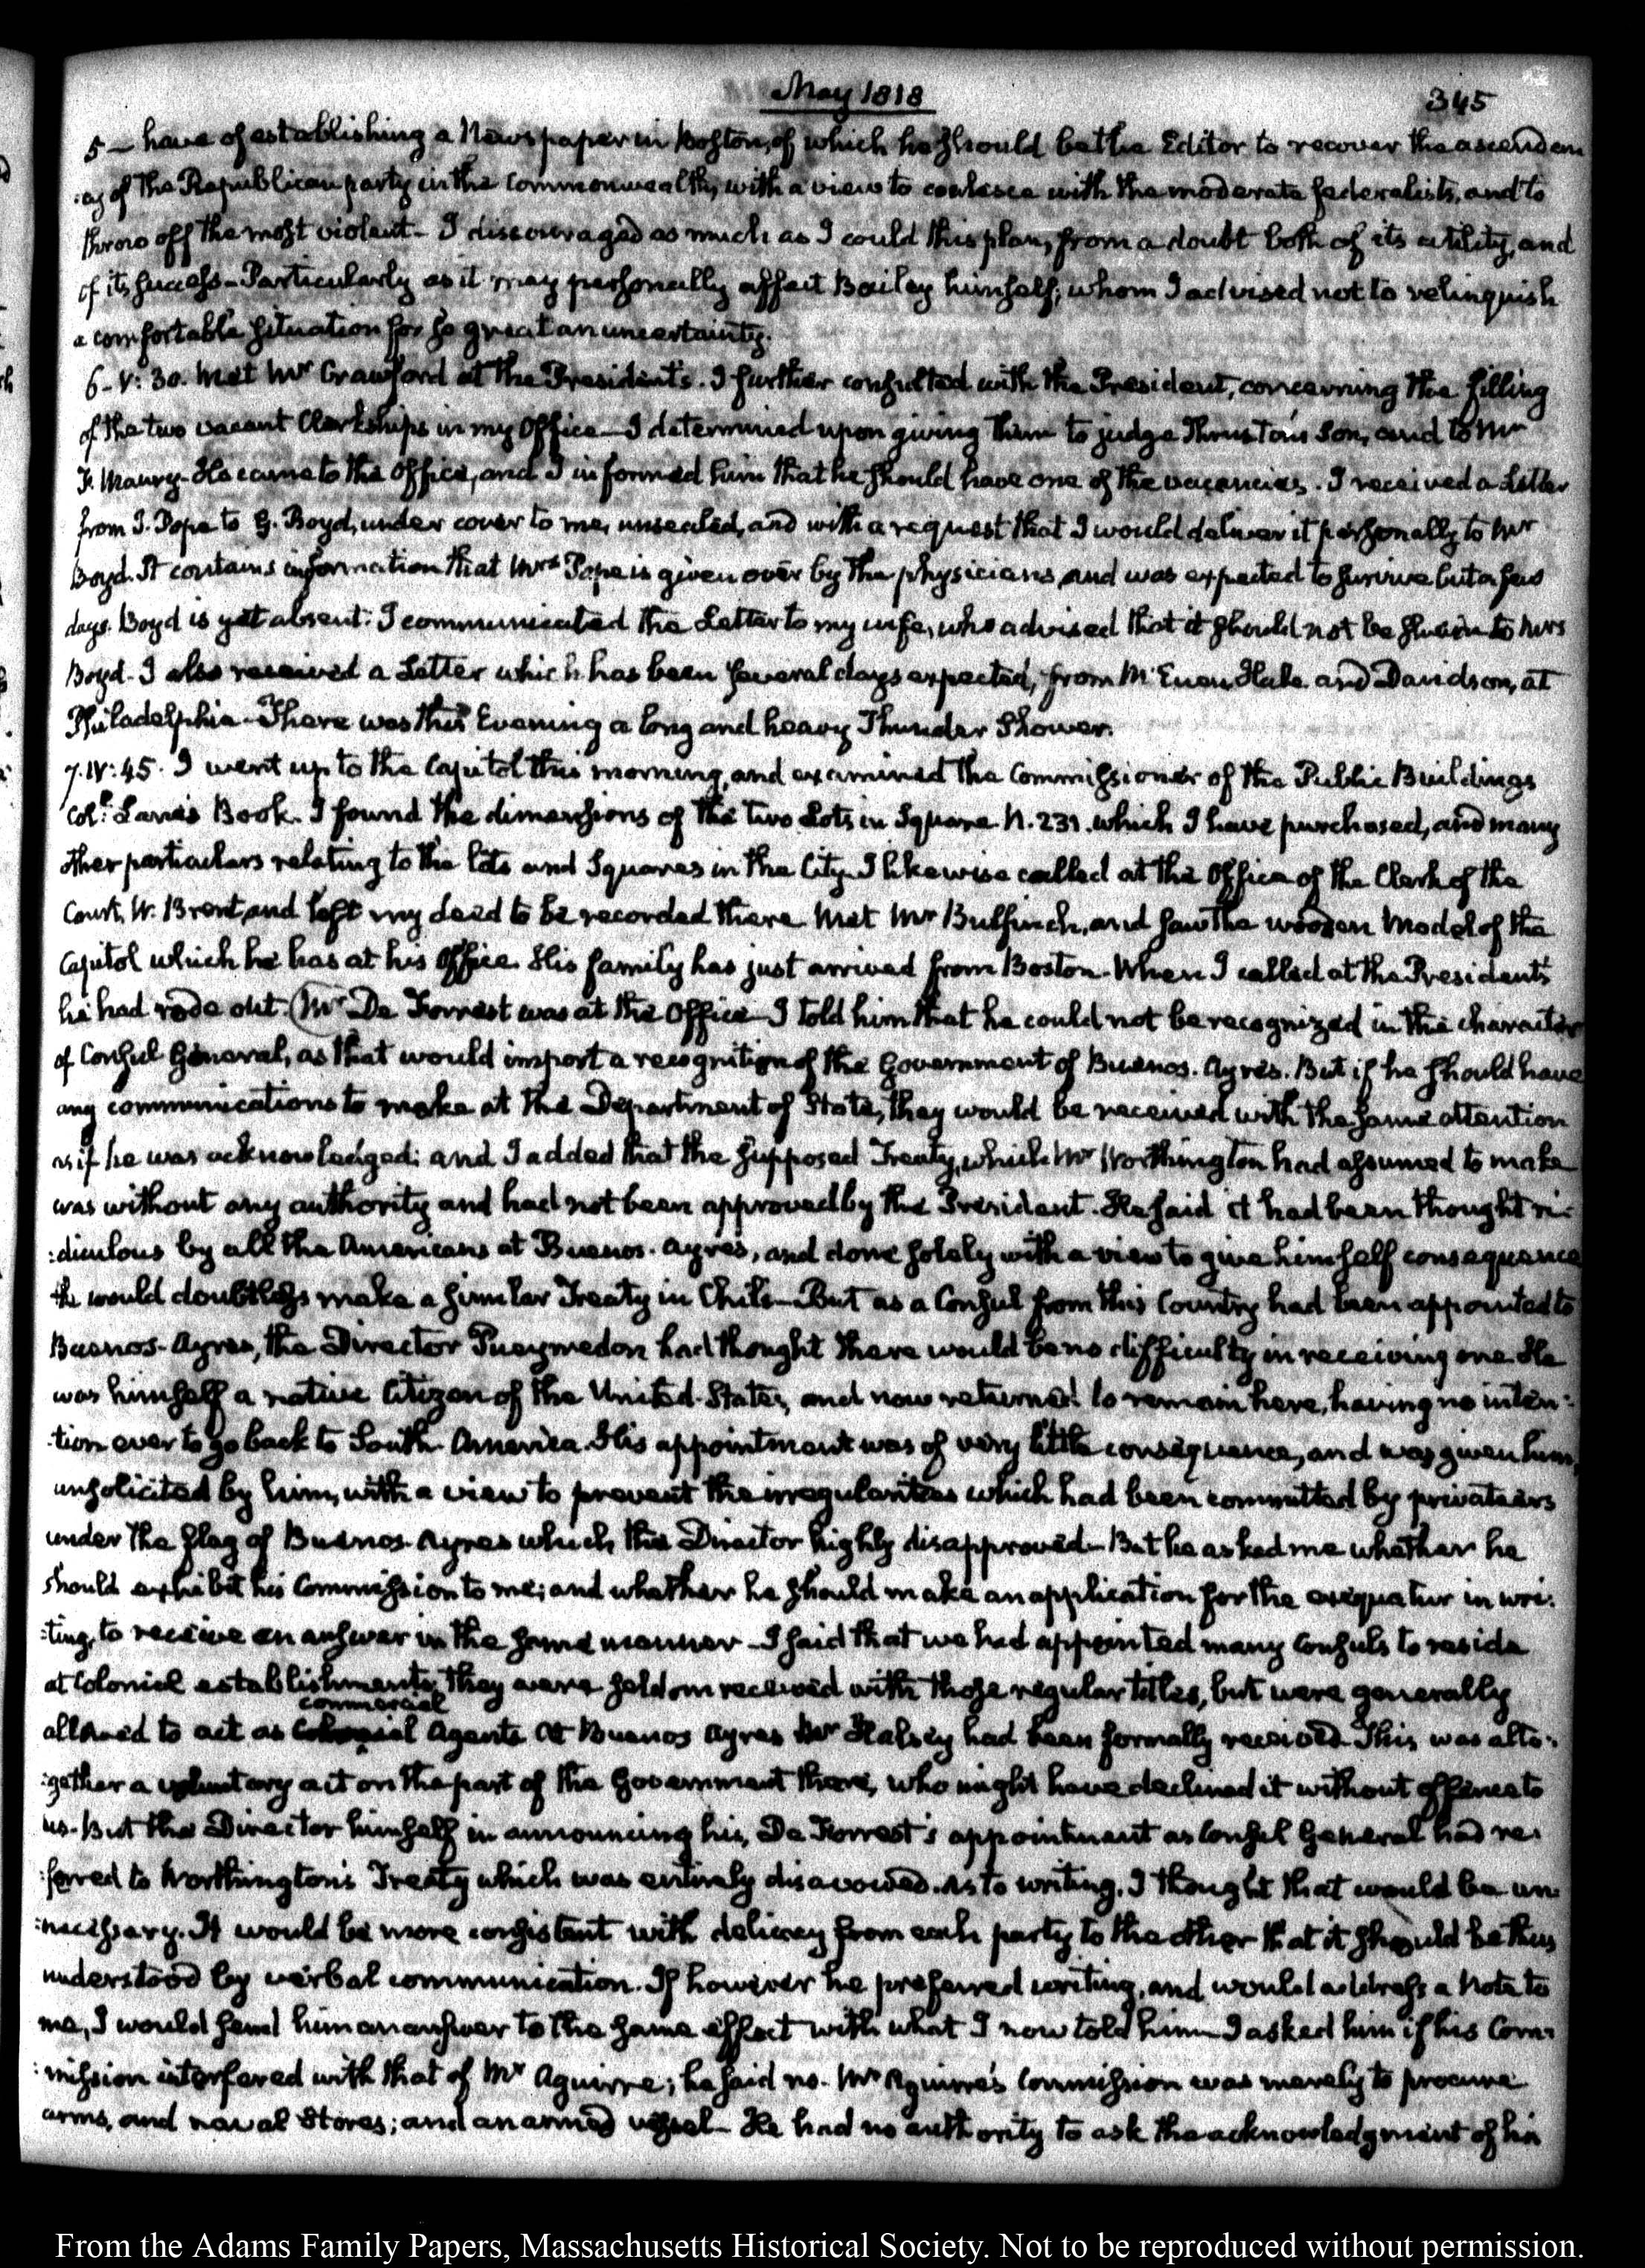 May 1818
345
5 — have of establishing a Newspaper in Boston, of which he should be the Editor to recover the ascendan
:cy of the Republican party in the Commonwealth, with a view to coalesce with the moderate federalists, and to
throw off the most violent — I discouraged as much as I could this plan, from a doubt both of its utility, and
of its success — Particularly as it may personally affect Bailey himself; whom I advised not to relinquish
a comfortable situation for so great an uncertainty.
6. V: 30. Met Mr Crawford at the President's. I further consulted with the President, concerning the filling
of the two vacant Clerkships in my Office — I determined upon giving them to judge Thruston's Son, and to Mr
F. Maury. He came to the Office, and I informed him that he should have one of the vacancies. I received a Letter
from J. Pope to G. Boyd, under cover to me, unsealed, and with a request that I would deliver it personally to Mr
Boyd. It contains information that Mrs Pope is given over by the physicians, and was expected to survive but a few
days. Boyd is yet absent. I communicated the Letter to my wife, who advised that it should not be shewn to Mrs
Boyd. I also received a Letter which has been several days expected, from McEuen, Hale and Davidson, at
Philadelphia — There was this Evening a long and heavy Thunder Shower.
7. IV: 45. I went up to the Capitol this morning, and examined the Commissioner of the Public Buildings
Col: Lane's Book. I found the dimensions of the two Lots in Square N. 231. which I have purchased, and many
other particulars relating to the lots and Squares in the City. I likewise called at the Office of the Clerk of the
Court, W. Brent, and left my deed to be recorded there. Met Mr Bulfinch, and saw the wooden Model of the
Capitol which he has at his Office. His family has just arrived from Boston. When I called at the President's
he had rode out. Mr De Forrest was at the Office — I told him that he could not be recognized in the character
of Consul General, as that would import a recognition of the Government of Buenos-Ayres. But if he should have
any communications to make at the Department of State, they would be received with the same attention
as if he was acknowledged: and I added that the supposed Treaty, which Mr Worthington had assumed to make
was without any authority and had not been approved by the President. He said it had been thought ri-
:diculous by all the Americans at Buenos-Ayres, and done solely with a view to give himself consequence
he would doubtless make a similar Treaty in Chile — But as a Consul from this Country had been appointed to
Buenos-Ayres, the Director Pueyrredon had thought there would be no difficulty in receiving one. He
was himself a native Citizen of the United-States, and now returned to remain here, having no inten:
:tion ever to go back to South-America. His appointment was of very little consequence, and was given him,
unsolicited by him, with a view to prevent the irregularities which had been committed by privateers
under the flag of Buenos-Ayres which the Director highly disapproved — But he asked me whether he
should exhibit his Commission to me; and whether he should make an application for the exequatur in wri:
:ting, to receive an answer in the same manner — I said that we had appointed many Consuls to reside
at Colonial establishments, they were seldom received with those regular titles, but were generally
commercial
allowed to act as Agents. At Buenos Ayres Mr Halsey had been formally received. This was alto:
:gether a voluntary act on the part of the Government there, who might have declined it without offence to
us. But the Director himself in announcing his, De Forrest's appointment as Consul General had re:
:ferred to Worthington's Treaty which was entirely disavowed. As to writing, I thought that would be un:
:necessary. It would be more consistent with delicacy from each party to the other that it should be thus
understood by verbal communication. If however he preferred writing, and would address a Note to
me, I would send him an answer to the same effect with what I now told him — I asked him if his Com:
:mission interfered with that of Mr Aguirre; he said no. Mr Aguirre's Commission was merely to procure
arms, and naval Stores; and an armed vessel — He had no authority to ask the acknowledgment of his
From the Adams Family Papers, Massachusetts Historical Society. Not to be reproduced without permission.